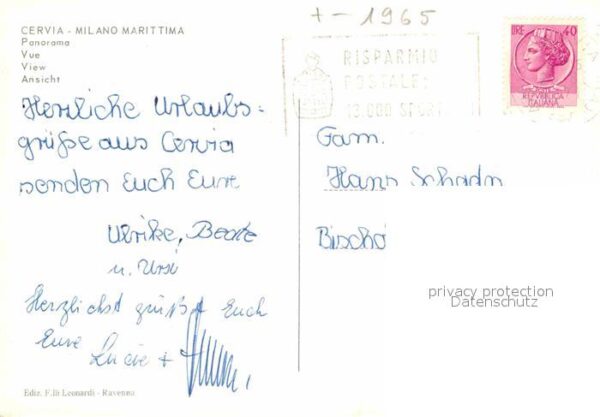 +-1965
CERVIA - MILANO MARITTIMA
Panorama
Vue
View
Ansicht
RISPARMIO
POSTALE:
13.000 SPORT
LIRE 40
REPVBBLICA
ITALIANA
Herzliche Urlaubs-
grüße aus Cervia
senden Euch Eure
Ulrike, Beate
u. Ursi
Herzlichst grüßt Euch
Eure Lucie +
Fam.
Hans
Bischo
privacy protection
Datenschutz
Ediz. F.lli Leonardi - Ravenna